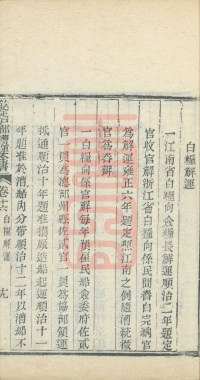 白糧解運
一江南省白糧向僉糧長解運順治二年題定
官收官解浙江省白糧向係民間齎白完納官
官為舂辦
為解運雍正六年題定照江南之例隨漕統徵
一白糧向係官解每年預僱民船僉委府佐貳
官一員為總部州縣佐貳官一員為協部領運
抵通順治十一年題准仍復厰造船起運順治十一
年題准於漕船內分帶順治十二年以漕船不
卷十六
白糧解運